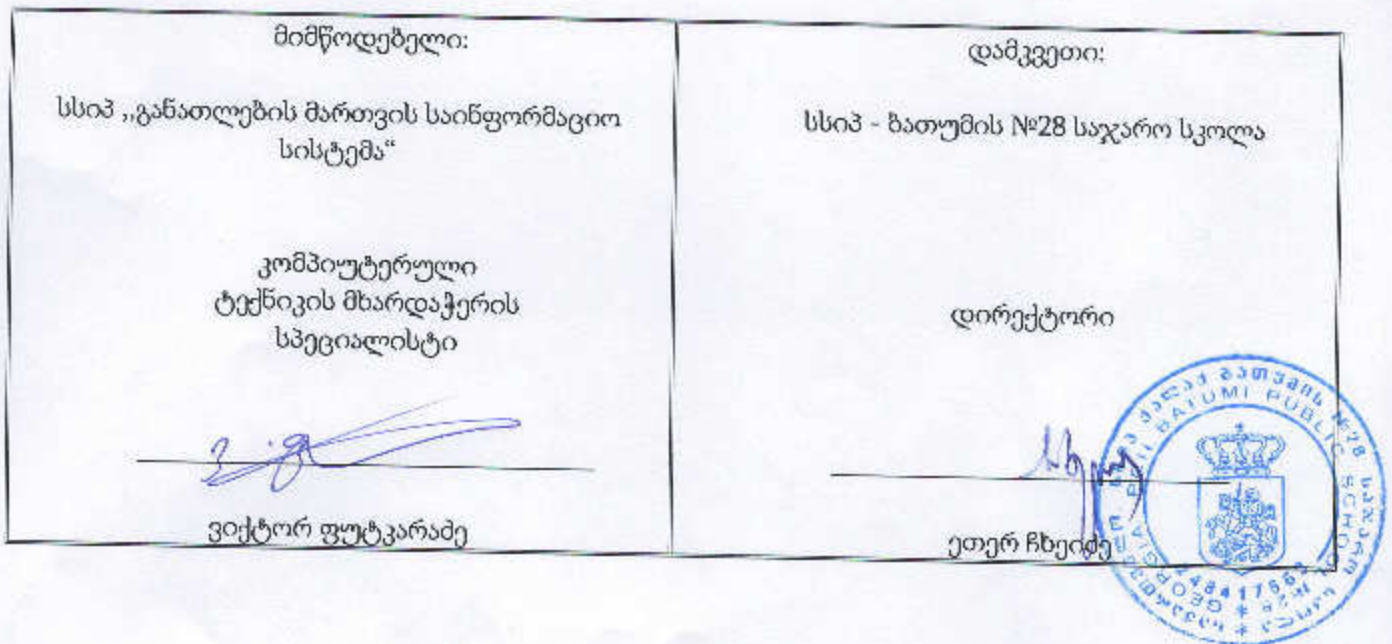 მიმწოდებელი:
სსიპ ,,განათლების მართვის საინფორმაციო
სისტემა“
კომპიუტერული
ტექნიკის მხარდაჭერის
სპეციალისტი
ვიქტორ ფუტკარაძე
დამკვეთი:
სსიპ - ბათუმის №28 საჯარო სკოლა
დირექტორი
ეთერ ჩხეიძე
ქალაქ ბათუმის №28 საჯარო სკოლა
BATUMI PUBLIC SCHOOL №28
GEORGIA